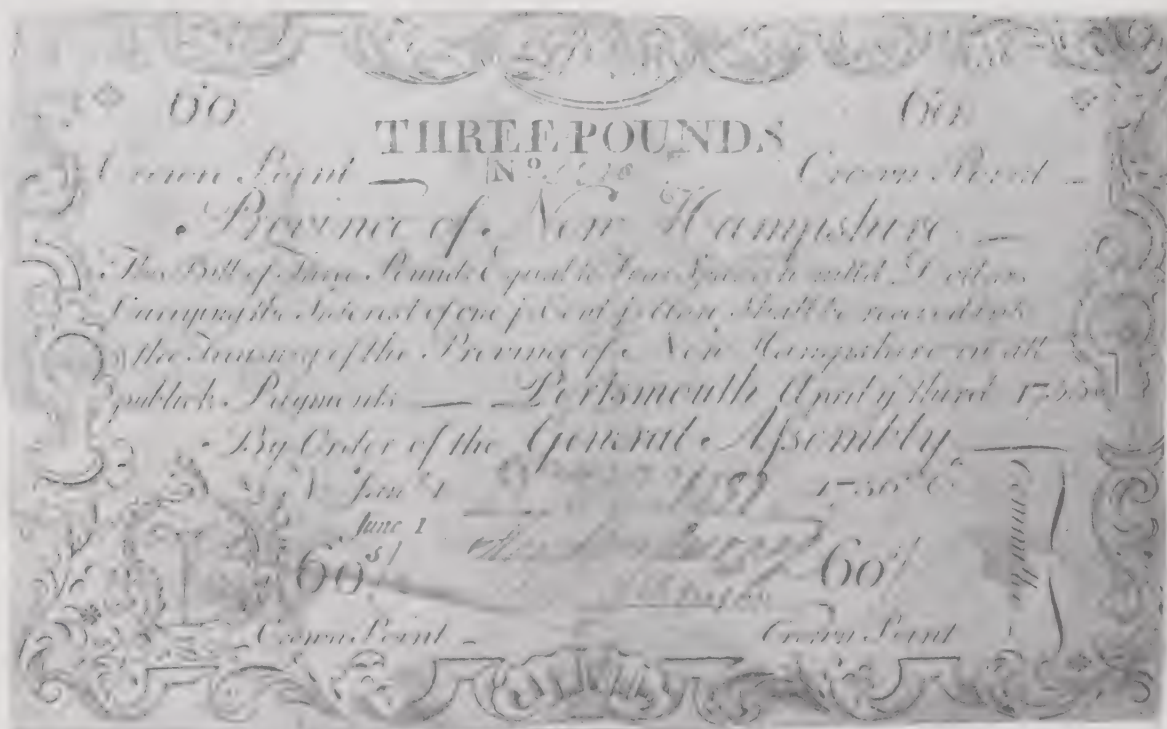 60 60
THREE POUNDS
Crown Point No Crown Point
Province of New Hampshire
This Bill of Three Pounds Equal to Four Spanish mill'd Dollars
the Interest of one p Cent p Ann Shall be received in
the Treasury of the Province of New Hampshire in all
publick Payments Portsmouth April ye third 175
By Order of the General Assembly
Jany 1
June 1
60s/ 60s/
Committee
Crown Point Crown Point